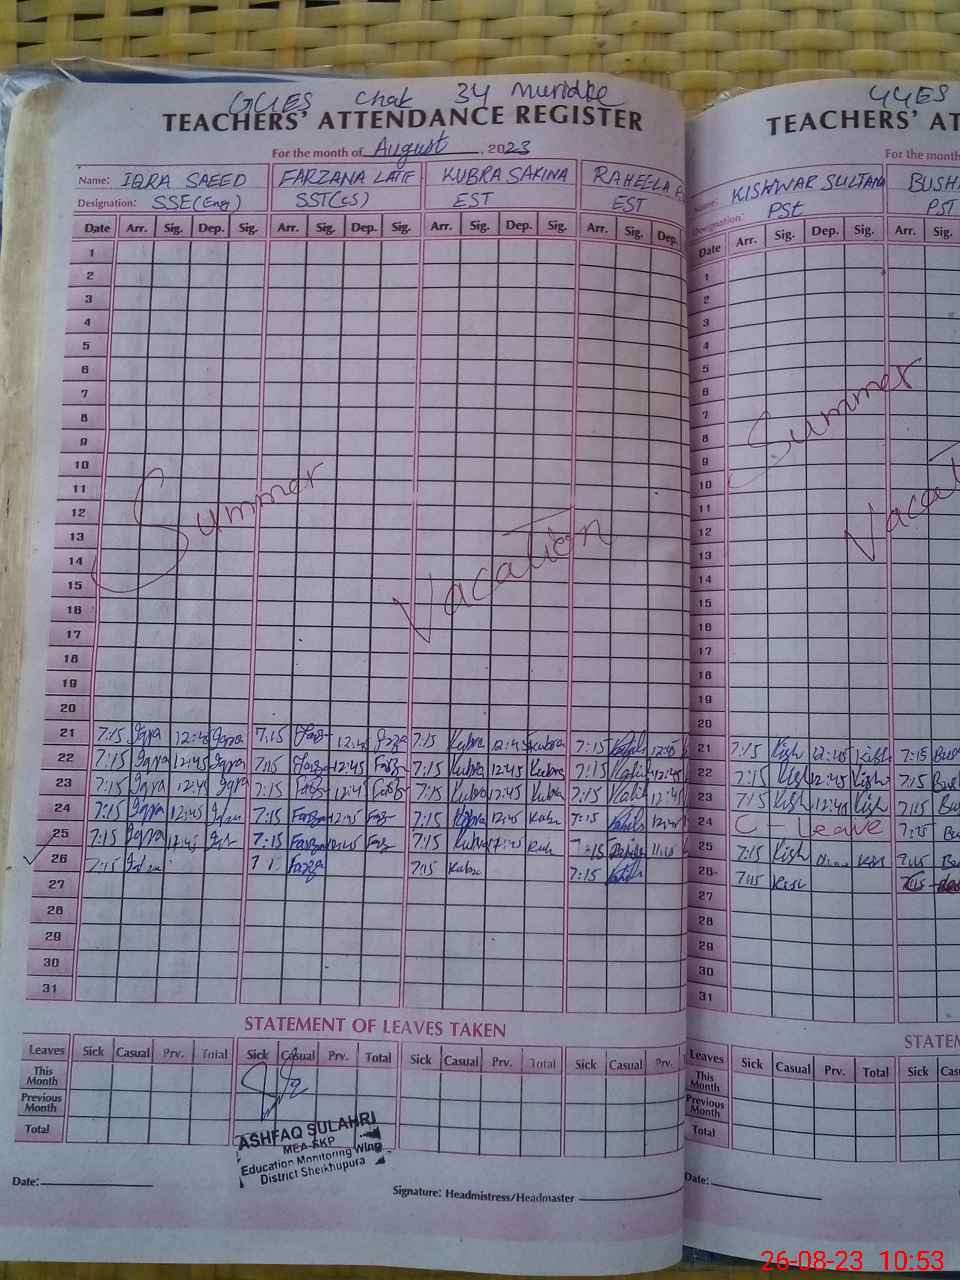 GGES Chak 34 Muridke
TEACHERS' ATTENDANCE REGISTER
For the month of August, 2023
Name: IQRA SAEED FARZANA LATIF KUBRA SAKINA RAHEELA
Designation: SSE(Eng) SST(CS) EST EST
Date Arr. Sig. Dep. Sig. Arr. Sig. Dep. Sig. Arr. Sig. Dep. Sig. Arr. Sig. Dep.
1
2
3
4
5
6
7
8
9
10
11
12
13
14
15
16
17
18
19
20
Summer
Vacation
21 7:15 Iqra 12:45 Iqra 7:15 12:45 7:15 Kubra 12:45 Kubra 7:15 12:45
22 7:15 Iqra 12:45 Iqra 7:15 12:45 7:15 Kubra 12:45 Kubra 7:15 12:45
23 7:15 Iqra 12:45 Iqra 7:15 12:45 7:15 Kubra 12:45 Kubra 7:15 12:45
24 7:15 Iqra 12:45 7:15 12:45 7:15 12:45 7:15 12:45
25 7:15 Iqra 12:45 7:15 7:15 Kubra 7:15
26 7:15 7:15 7:15
27
28
29
30
31
STATEMENT OF LEAVES TAKEN
Leaves Sick Casual Prv. Total Sick Casual Prv. Total Sick Casual Prv. Total Sick Casual Prv.
This Month
Previous Month
Total
ASHFAQ SULAHRI
MEA-SKP
Education Monitoring Wing
District Sheikhupura
Date:
Signature: Headmistress/Headmaster
TEACHERS' AT
For the month
Name: KISHWAR SULTANA BUSH
Designation: PST PST
Date Arr. Sig. Dep. Sig. Arr. Sig.
1
2
3
4
5
6
7
8
9
10
11
12
13
14
15
16
17
18
19
20
Summer
Vacat
21 7:15 Kish 12:45 Kish 7:15 Bus
22 7:15 Kish 12:45 Kish 7:15 Bus
23 7:15 Kish 12:45 Kish 7:15 Bu
24 C - Leave 7:15
25 7:15 Kish 7:15
26 7:15
27
28
29
30
31
STATEM
Leaves Sick Casual Prv. Total Sick Cas
This Month
Previous Month
Total
Date:
26-08-23 10:53